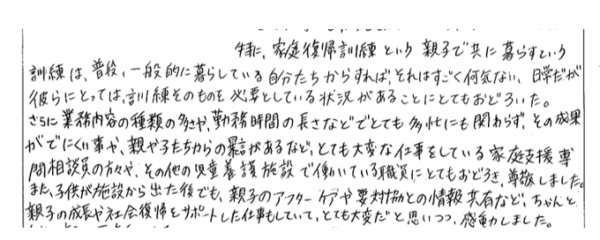 特に、家庭復帰訓練という 親子で共に 暮らすという
訓練は、普段、一般的に暮らしている自分たちからすれば、それはすごく何気ない、日常だが
彼らにとっては、訓練そのものを必要としている状況があることにとてもおどろいた。
さらに業務内容の種類の多さや、勤務時間の長さなどでとても多忙にも関わらず、その成果
がでにくい事や、親や子たちからの暴言があるなど、とても大変な仕事をしている家庭支援専
門相談員の方々や、その他の児童養護施設で働いている職員にとてもおどろき、尊敬しました。
また、子供が施設から出た後でも、親子のアフターケアや要対協との情報共有など、ちゃんと
親子の成長や社会復帰をサポートした仕事もしていて、とても大変だと思いつつ、感動しました。